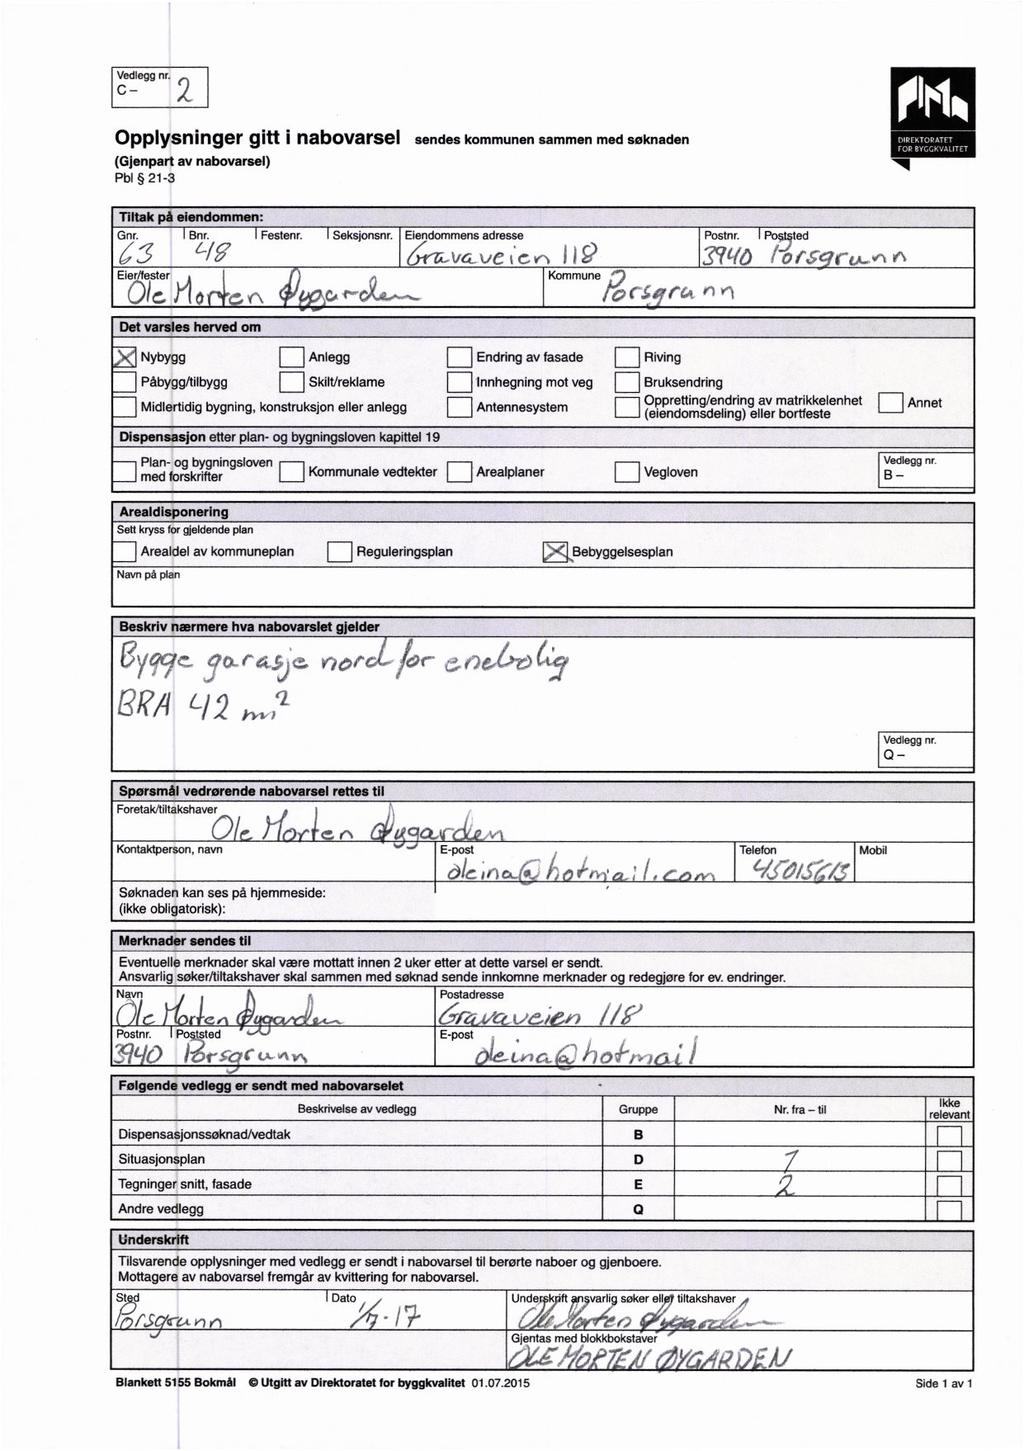 Vedlegg nr.
C – 2
DIREKTORATET
FOR BYGGKVALITET
Opplysninger gitt i nabovarsel sendes kommunen sammen med søknaden
(Gjenpart av nabovarsel)
Pbl § 21-3
Tiltak på eiendommen:
Gnr. Bnr. Festenr. Seksjonsnr. Eiendommens adresse Postnr. Poststed
63 48 Gravaveien 118 3940 Porsgrunn
Eier/fester Kommune
Ole Morten Øygarden Porsgrunn
Det varsles herved om
Nybygg Anlegg Endring av fasade Riving
Påbygg/tilbygg Skilt/reklame Innhegning mot veg Bruksendring
Midlertidig bygning, konstruksjon eller anlegg Antennesystem Oppretting/endring av matrikkelenhet (eiendomsdeling) eller bortfeste Annet
Dispensasjon etter plan- og bygningsloven kapittel 19
Plan- og bygningsloven med forskrifter Kommunale vedtekter Arealplaner Vegloven Vedlegg nr.
B –
Arealdisponering
Sett kryss for gjeldende plan
Arealdel av kommuneplan Reguleringsplan Bebyggelsesplan
Navn på plan
Beskriv nærmere hva nabovarslet gjelder
Bygge garasje nord for enebolig
BRA 42 m²
Vedlegg nr.
Q –
Spørsmål vedrørende nabovarsel rettes til
Foretak/tiltakshaver
Ole Morten Øygarden
Kontaktperson, navn E-post Telefon Mobil
oleina@hotmail.com 45015613
Søknaden kan ses på hjemmeside:
(ikke obligatorisk):
Merknader sendes til
Eventuelle merknader skal være mottatt innen 2 uker etter at dette varsel er sendt.
Ansvarlig søker/tiltakshaver skal sammen med søknad sende innkomne merknader og redegjøre for ev. endringer.
Navn Postadresse
Ole Morten Øygarden Gravaveien 118
Postnr. Poststed E-post
3940 Porsgrunn oleina@hotmail
Følgende vedlegg er sendt med nabovarselet
Beskrivelse av vedlegg Gruppe Nr. fra – til Ikke relevant
Dispensasjonssøknad/vedtak B
Situasjonsplan D 1
Tegninger snitt, fasade E 2
Andre vedlegg Q
Underskrift
Tilsvarende opplysninger med vedlegg er sendt i nabovarsel til berørte naboer og gjenboere.
Mottagere av nabovarsel fremgår av kvittering for nabovarsel.
Sted Dato Underskrift ansvarlig søker eller tiltakshaver
Porsgrunn 1/7-17 Ole Morten Øygarden
Gjentas med blokkbokstaver
OLE MORTEN ØYGARDEN
Blankett 5155 Bokmål © Utgitt av Direktoratet for byggkvalitet 01.07.2015 Side 1 av 1